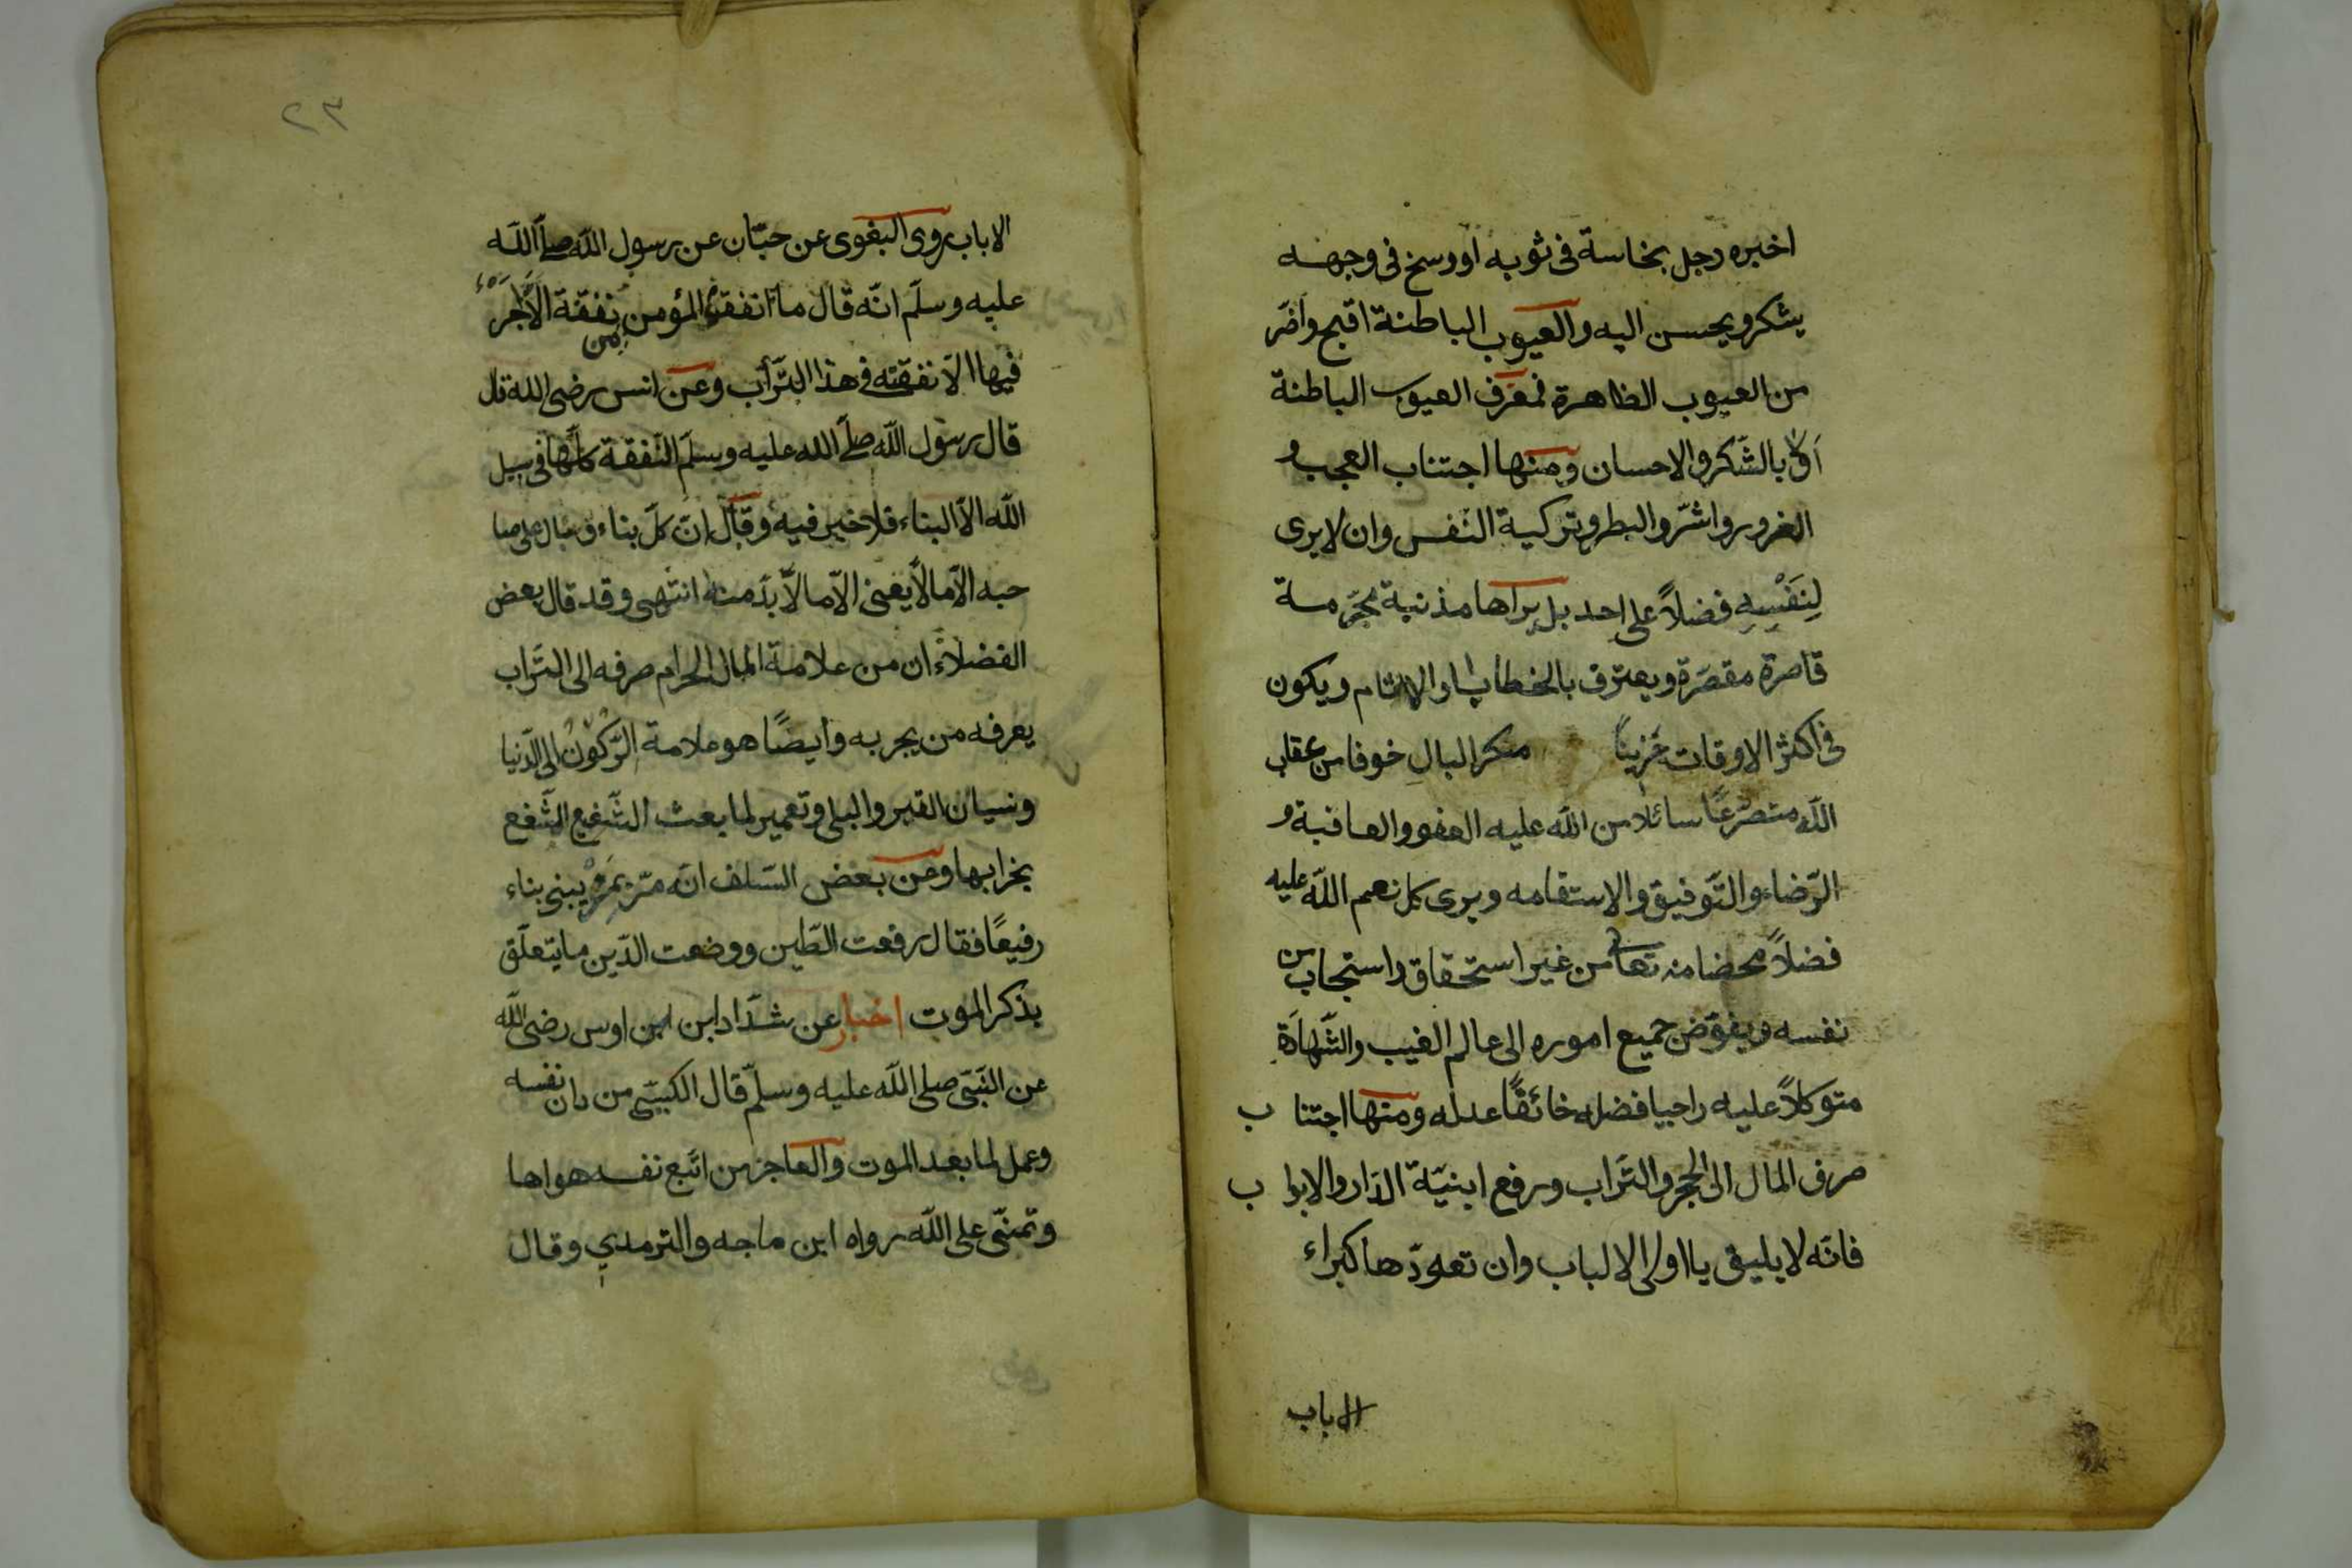 اخبره رجل بنجاسة فى ثوبه او وسخ فى وجهه
يشكر ويحسن اليه والعيوب الباطنة اقبح واضر
من العيوب الظاهرة فمعرف العيوب الباطنة
اولى بالشكر والاحسان ومنها اجتناب العجب و
الغرور واشر والبطر وتزكية النفس وان لا يرى
لِنَفْسِهِ فضلاً على احد بل يراها مذنبة مجرمة
قاصرة مقصرة ويعترف بالخطايا والاثام ويكون
فى اكثر الاوقات حزيناً منكر البال خوفا من عقاب
الله متضرعًا سائلا من الله عليه العفو والعافية و
الرّضاء والتّوفيق والاستقامه ويرى كل نعم الله عليه
فضلاً محضا منه تعالى من غير استحقاق واستجاب من
نفسه ويفوّض جميع اموره الى عالم الغيب والشّهادة
متوكلاً عليه راجيا فضله خائفًا عدله ومنها اجتناب
صرف المال الى الحجر والتراب ورفع ابنيّة الدار والابواب
فانّه لا يليق يا اولى الالباب وان تعوّدها كبراء
الاباب
٢٣
الاباب روى البغوى عن حبّان عن رسول الله صلّى الله
عليه وسلّم انّه قال ما انفقه المؤمن من نفقة الّا اجره
فيها الّا نفقته فى هذا التّراب وعن انس رضى الله قال
قال رسول الله صلّى الله عليه وسلّم النّفقة كلّها فى سبيل
الله الّا البناء فلا خير فيه وقال انّ كلّ بناء وبال على صا
حبه الّا مالا يعنى الّا مالا بدّ منه انتهى وقد قال بعض
الفضلاء ان من علامة المال الحرام صرفه الى التّراب
يعرفه من يجربه وايضًا هو علامة الرّكون الى الدّنيا
ونسيان القبر والبلى وتعمير لما بعث الشّفيع الشّفع
بخرابها وعن بعض السّلف انّه مرّ بمرء يبنى بناء
رفيعًا فقال رفعت الطّين ووضعت الدّين ما يتعلّق
بذكر الموت اخبار عن شدّاد ابن ابن اوس رضى الله
عن النّبىّ صلى الله عليه وسلّم قال الكيّس من دان نفسه
وعمل لما بعد الموت والعاجز من اتبع نفسه هواها
وتمنّى على الله رواه ابن ماجه والترمدي وقال